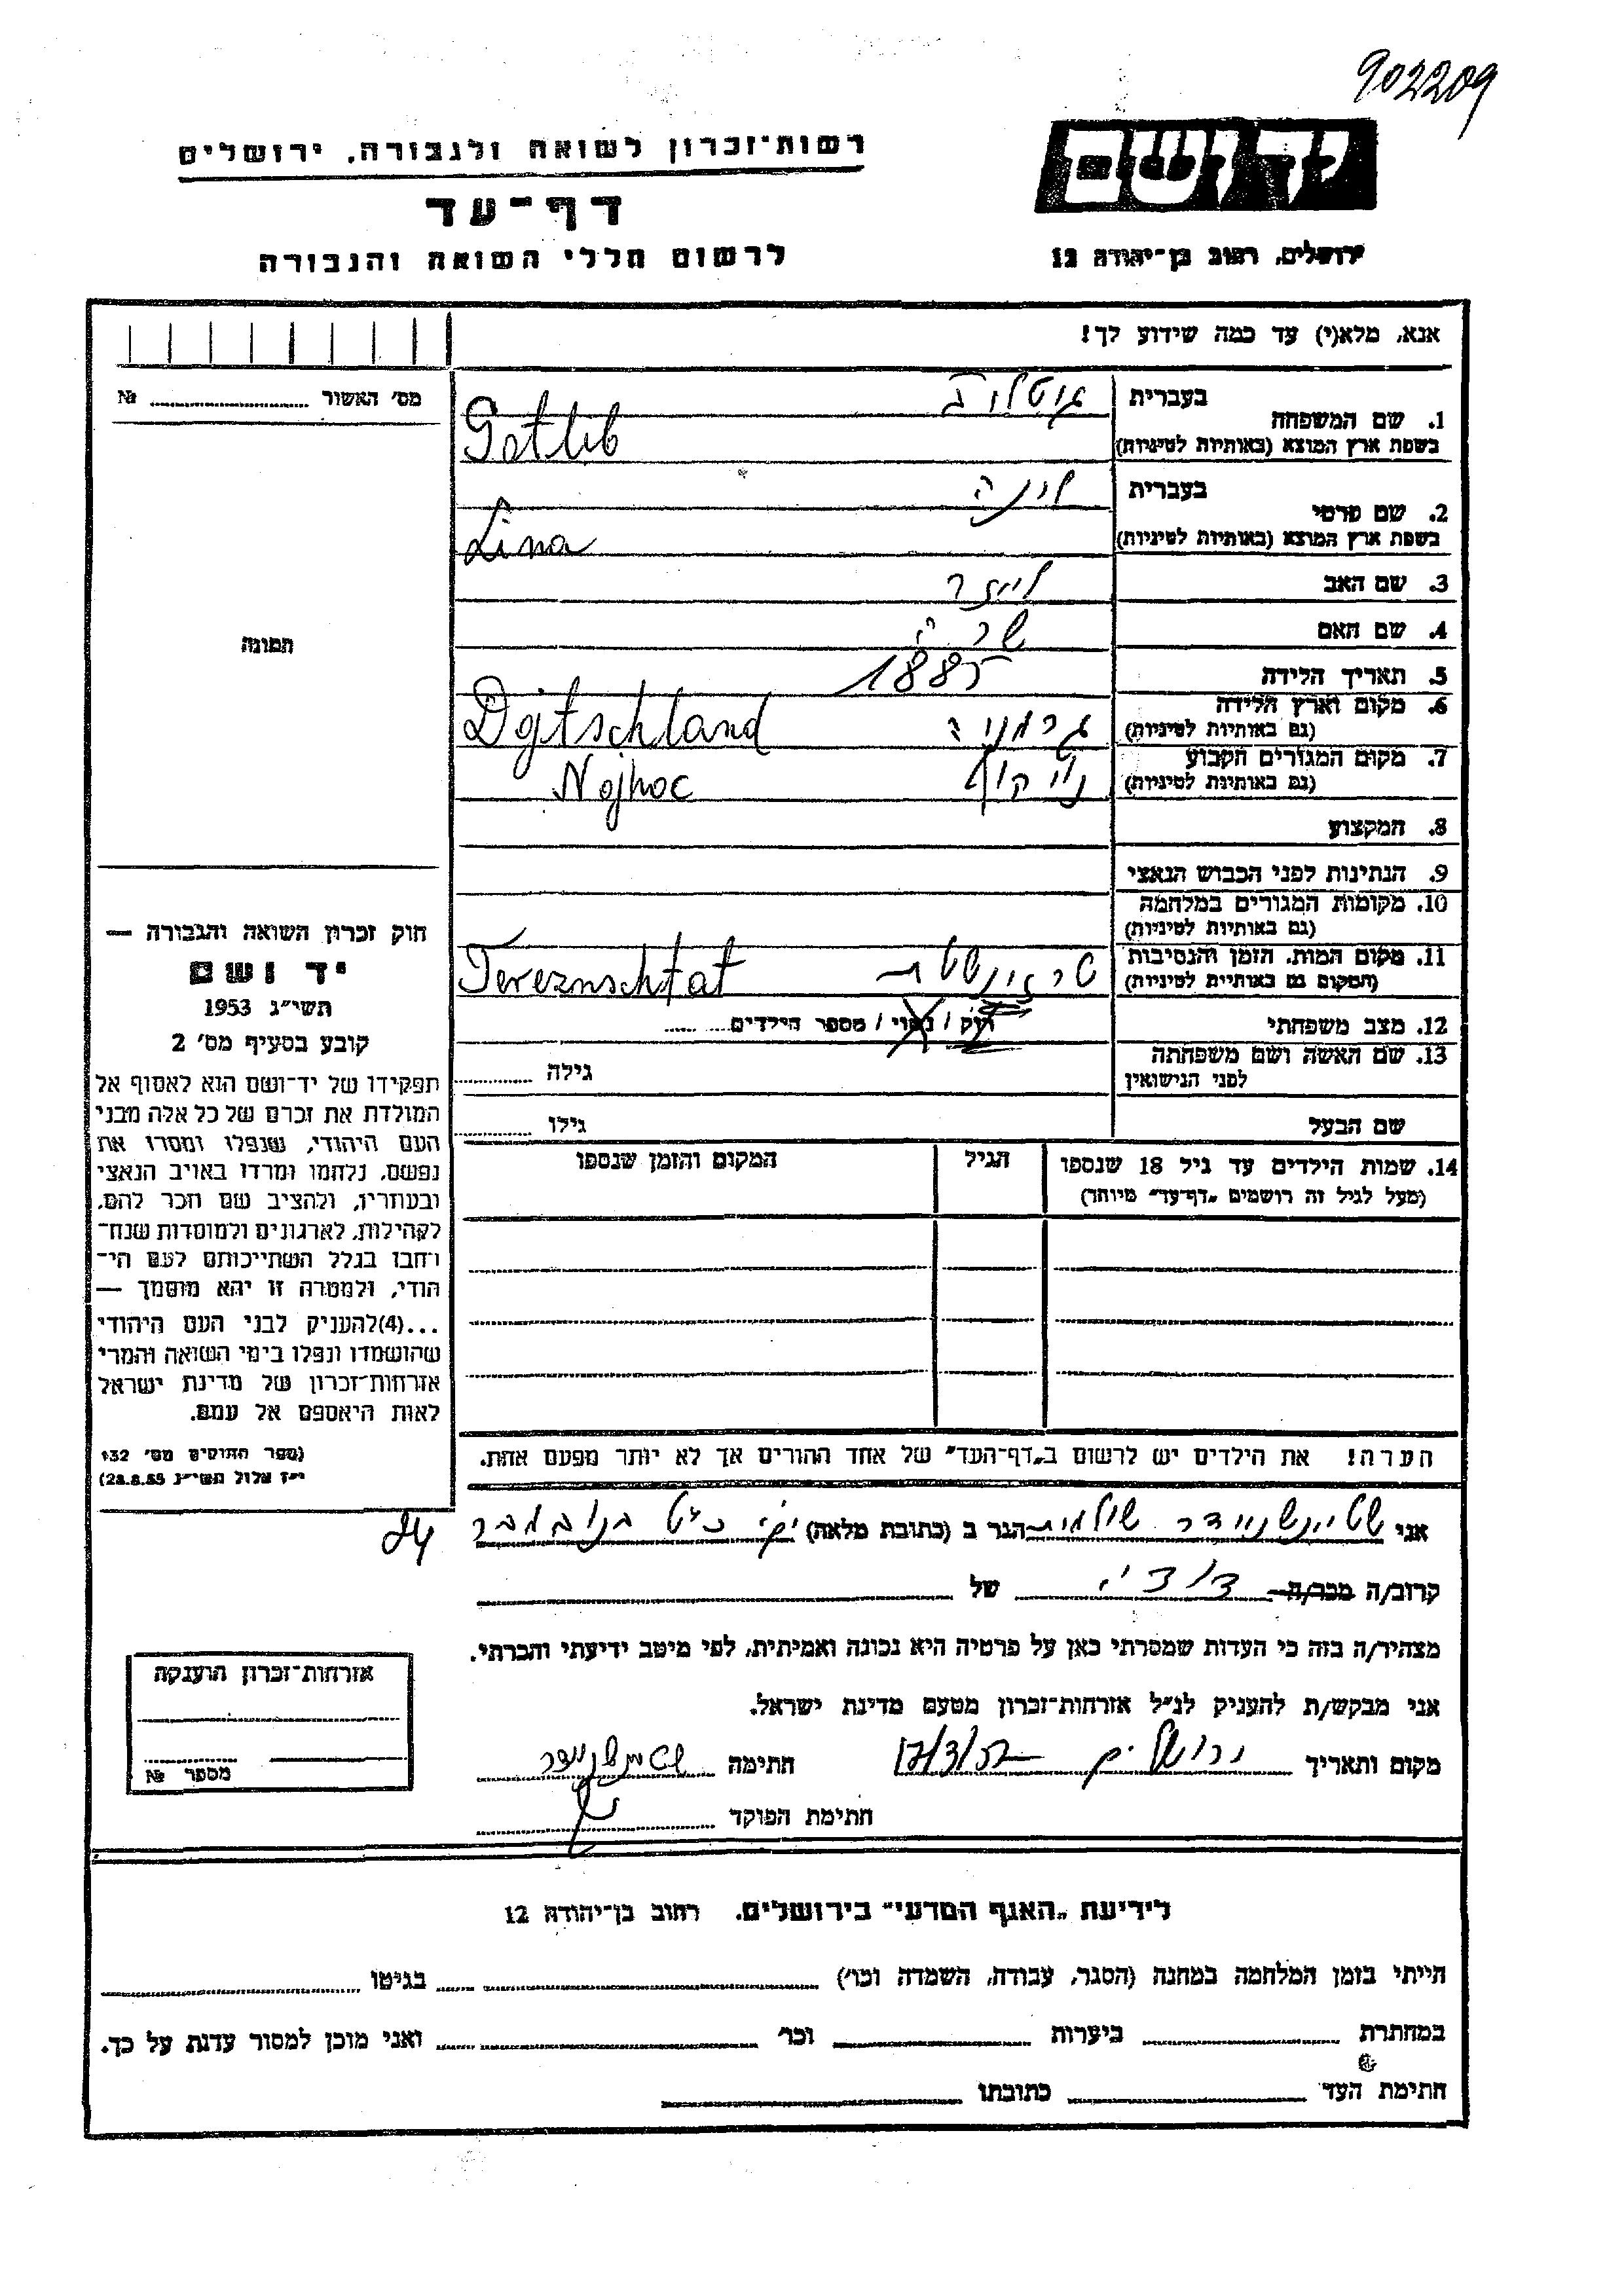 902209
רשות־זכרון לשואה ולגבורה, ירושלים
דף־עד
לרשום חללי השואה והגבורה
יד ושם
ירושלים, רחוב בן־יהודה 12
אנא, מלא(י) עד כמה שידוע לך!
מס' האשור № ........
תמונה
1. שם המשפחה
בעברית גוטליב
בשפת ארץ המוצא (באותיות לטיניות) Gotlib
2. שם פרטי
בעברית לינה
בשפת ארץ המוצא (באותיות לטיניות) Lina
3. שם האב לייזר
4. שם האם שרה
5. תאריך הלידה 1885
6. מקום וארץ הלידה
(גם באותיות לטיניות) גרמניה Dojtschland
7. מקום המגורים הקבוע
(גם באותיות לטיניות) Nojhoc
8. המקצוע
9. הנתינות לפני הכבוש הנאצי
10. מקומות המגורים במלחמה
(גם באותיות לטיניות)
11. מקום המות, הזמן והנסיבות
(המקום גם באותיות לטיניות) טרזינשטט Tereznschtat
12. מצב משפחתי רוק / נשוי / מספר הילדים........
13. שם האשה ושם משפחתה
לפני הנישואין גילה ........
שם הבעל גילו ........
14. שמות הילדים עד גיל 18 שנספו הגיל המקום והזמן שנספו
(מעל לגיל זה רושמים „דף־עד" מיוחד)
הערה! את הילדים יש לרשום ב„דף־העד" של אחד ההורים אך לא יותר מפעם אחת.
חוק זכרון השואה והגבורה —
יד ושם
תשי"ג 1953
קובע בסעיף מס' 2
תפקידו של יד־ושם הוא לאסוף אל
המולדת את זכרם של כל אלה מבני
העם היהודי, שנפלו ומסרו את
נפשם, נלחמו ומרדו באויב הנאצי
ובעוזריו, ולהציב שם וזכר להם,
לקהילות, לארגונים ולמוסדות שנח־
רבו בגלל השתייכותם לעם הי־
הודי, ולמטרה זו יהא מוסמך —
...(4)להעניק לבני העם היהודי
שהושמדו ונפלו בימי השואה והמרי
אזרחות־זכרון של מדינת ישראל
לאות היאספם אל עמם.
(ספר החוקים מס' 132
י"ז אלול תשי"ג 28.8.53)
אני שטיינשניידר שולמית הגר ב (כתובת מלאה) כ"ט בנובמבר 24
קרוב/ה מכר/ה דודה של
מצהיר/ה בזה כי העדות שמסרתי כאן על פרטיה היא נכונה ואמיתית, לפי מיטב ידיעתי והכרתי.
אני מבקש/ת להעניק לנ"ל אזרחות־זכרון מטעם מדינת ישראל.
מקום ותאריך ירושלים חתימה
חתימת הפוקד
אזרחות־זכרון הוענקה
מספר №
לידיעת „האגף המדעי" בירושלים, רחוב בן־יהודה 12
הייתי בזמן המלחמה במחנה (הסגר, עבודה, השמדה וכו') ........ בגיטו ........
במחתרת ........ ביערות ........ וכו' ........ ואני מוכן למסור עדות על כך.
חתימת העד ........ כתובתו ........